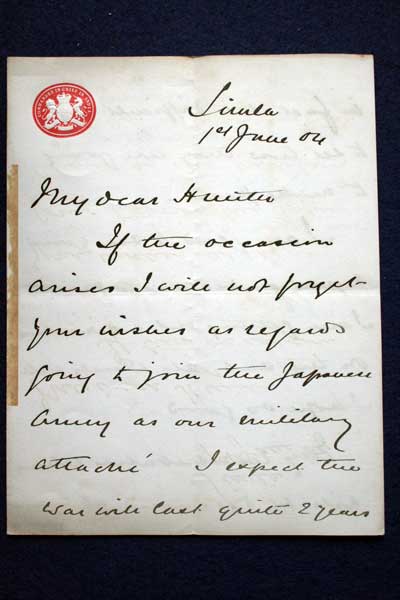 COMMANDER IN CHIEF IN INDIA
Simla
1st June 04
My dear Hunter
If the occasion
arises I will not forget
your wishes as regards
going to join the Japanese
Army as our military
attaché I expect the
war will last quite 2 years